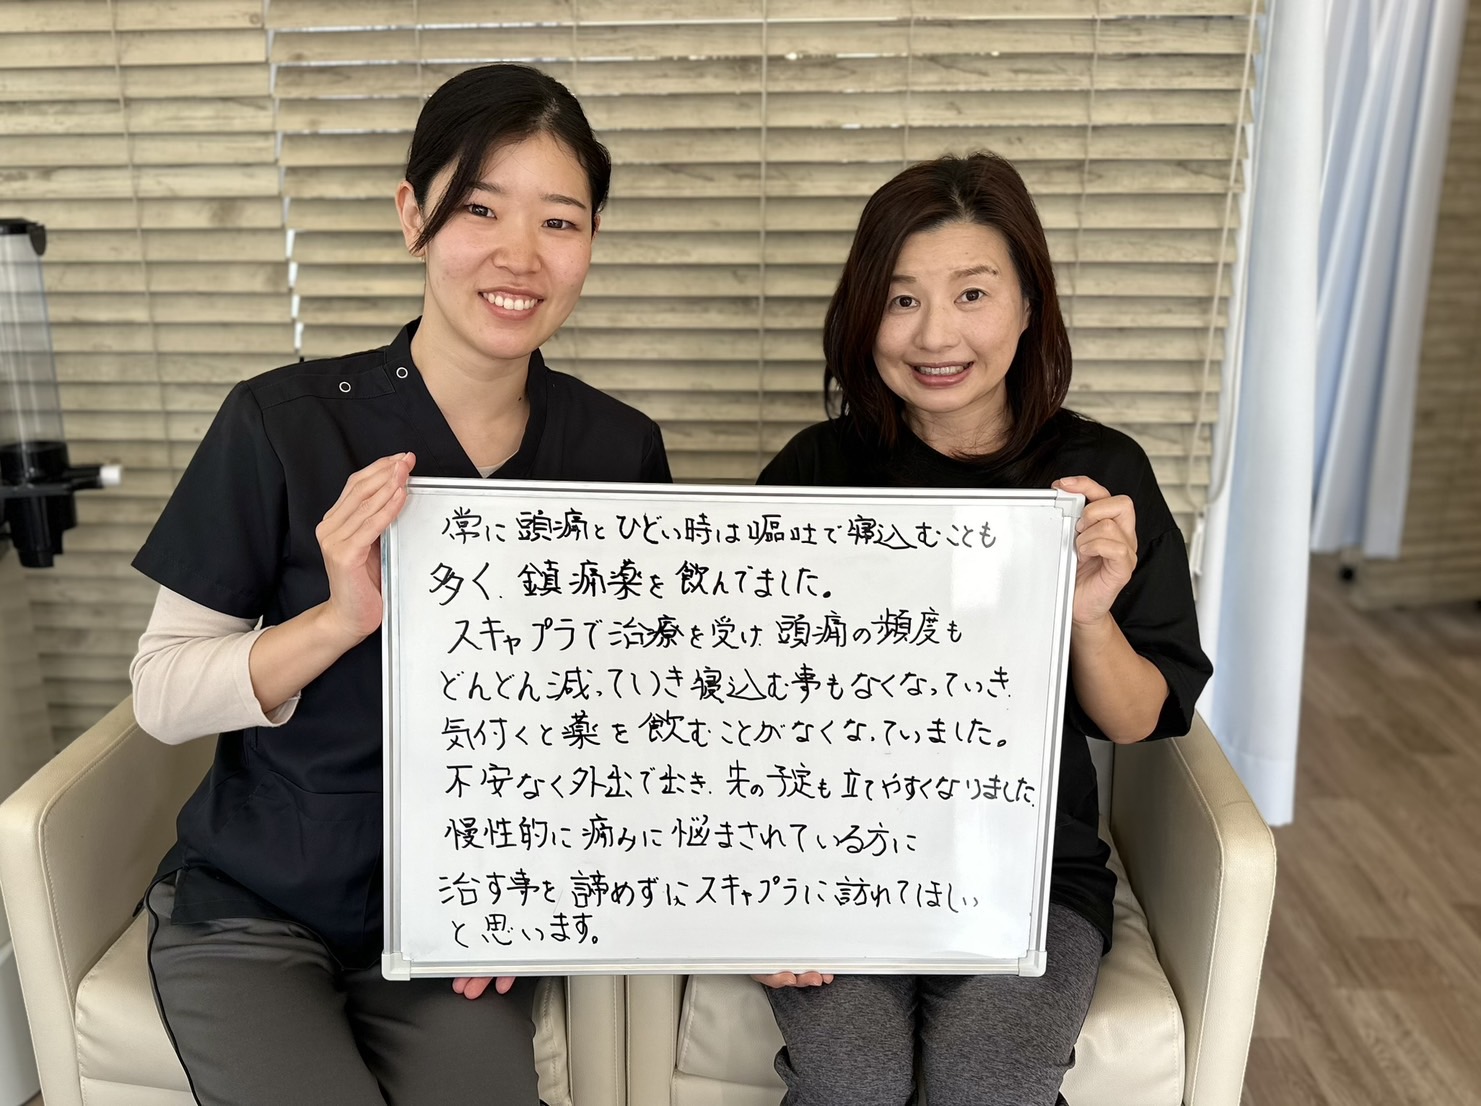 常に頭痛とひどい時は嘔吐で寝込むことも
多く、鎮痛薬を飲んでました。
スキャプラで治療を受け、頭痛の頻度も
どんどん減っていき寝込む事もなくなっていき、
気付くと薬を飲むことがなくなっていました。
不安なく外出で出き、先の予定も立てやすくなりました。
慢性的に痛みに悩まされている方に
治す事を諦めずにスキャプラに訪れてほしい
と思います。